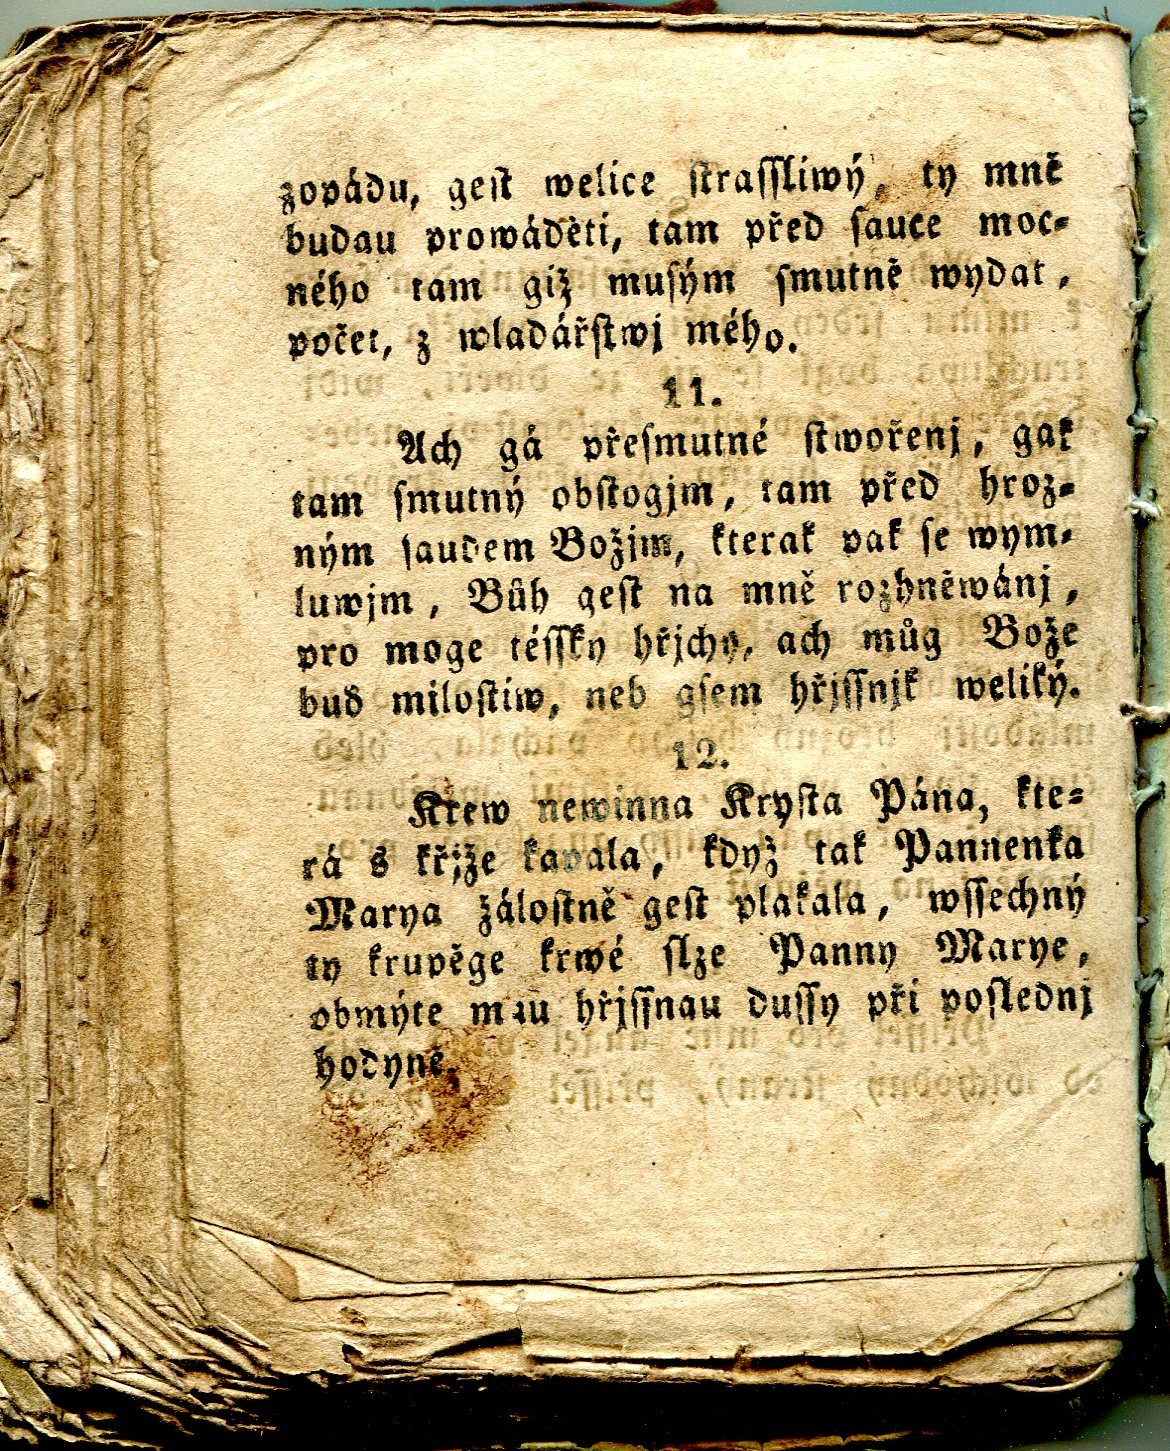 zopádu, gest welice strassliwý, ty mně
budau prowáděti, tam před sauce moc-
ného tam giž musým smutně wydat,
počet, z wladářstwj mého.
11.
Ach gá přesmutné stwořenj, gak
tam smutný obstogjm, tam před hroz-
ným saudem Božjm, kterak pak se wym-
luwjm, Bůh gest na mně rozhněwánj,
pro moge tésſky hřjchy, ach můg Bože
buď milostiw, neb gsem hřjssnjk weliký.
12.
Krew newinna Krysta Pána, kte-
rá s křjže kapala, když tak Pannenka
Marya žálostně gest plakala, wssechný
ty krupěge krwé slze Panny Marye,
obmýte mau hřjssnau dussy při poslednj
hodyně.